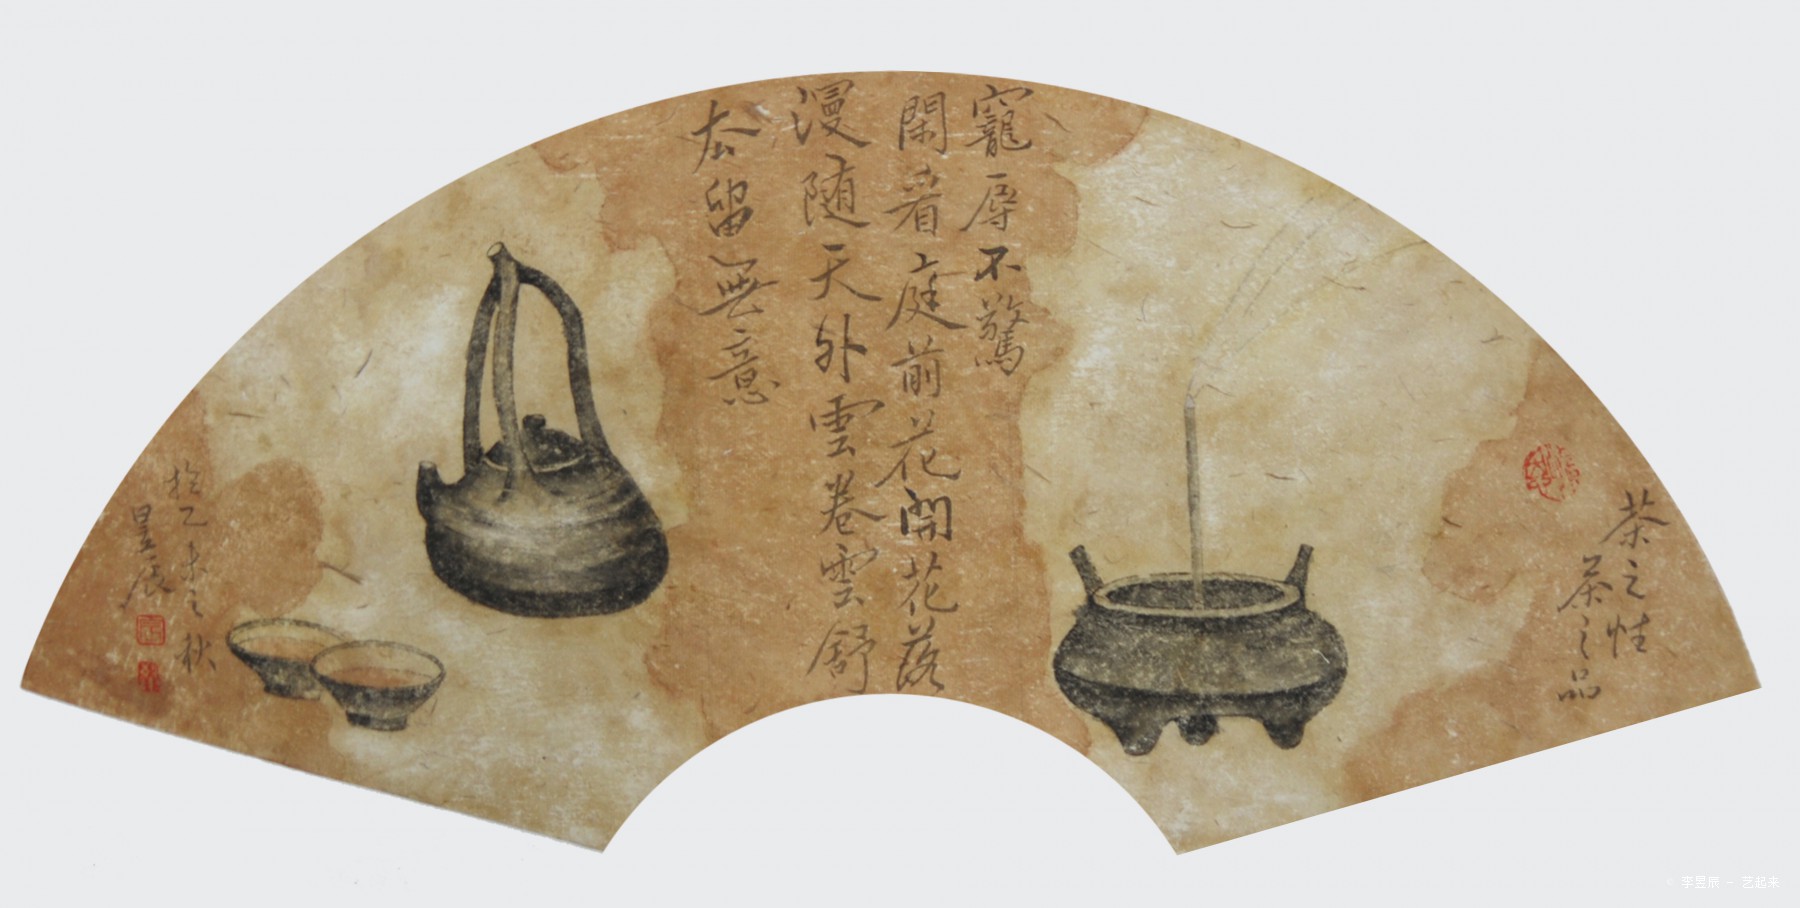 茶之性
茶之品
寵辱不驚
閑看庭前花開花落
漫隨天外雲卷雲舒
去留無意
於乙未之秋
昱辰
李昱辰 - 艺起来